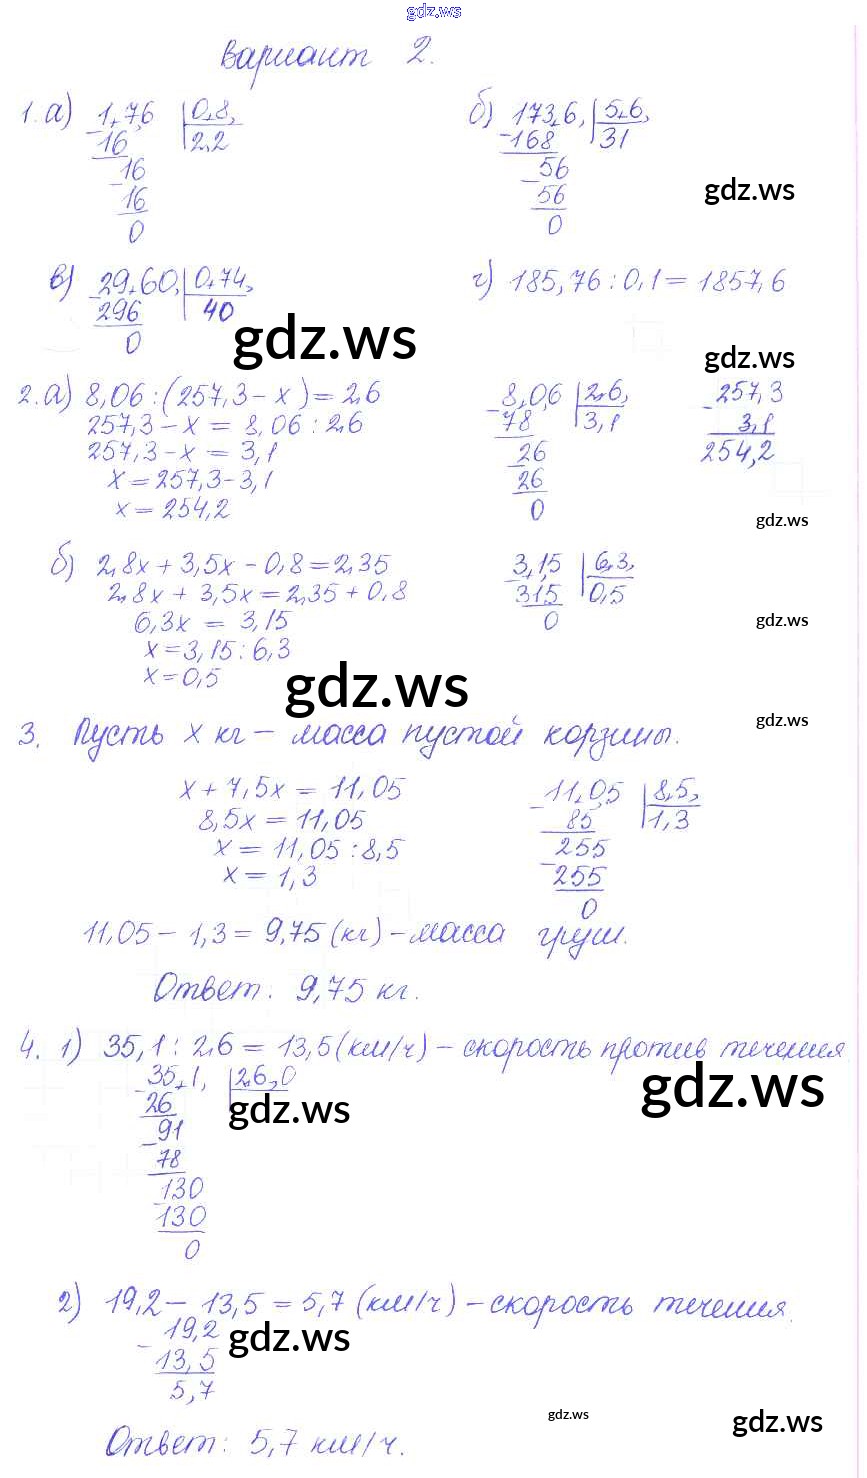 gdz.ws
Вариант 2.
1. а) 1,76 | 0,8,
16 | 2,2
16
16
0
б) 173,6, | 5,6,
168 | 31
56
56
0
gdz.ws
в) 29,60, | 0,74,
296 | 40
0
г) 185,76 : 0,1 = 1857,6
gdz.ws
gdz.ws
2. а) 8,06 : (257,3 - х) = 2,6
257,3 - х = 8,06 : 2,6
257,3 - х = 3,1
х = 257,3 - 3,1
х = 254,2
8,06 | 2,6,
78 | 3,1
26
26
0
257,3
3,1
254,2
gdz.ws
б) 2,8х + 3,5х - 0,8 = 2,35
2,8х + 3,5х = 2,35 + 0,8
6,3х = 3,15
х = 3,15 : 6,3
х = 0,5
3,15 | 6,3,
315 | 0,5
0
gdz.ws
gdz.ws
gdz.ws
3. Пусть х кг - масса пустой корзины.
х + 7,5х = 11,05
8,5х = 11,05
х = 11,05 : 8,5
х = 1,3
11,05 | 8,5,
85 | 1,3
255
255
0
11,05 - 1,3 = 9,75 (кг) - масса груш.
Ответ: 9,75 кг.
4. 1) 35,1 : 2,6 = 13,5 (км/ч) - скорость против течения
35,1, | 2,6,0
26
91
78
130
130
0
gdz.ws
gdz.ws
2) 19,2 - 13,5 = 5,7 (км/ч) - скорость течения.
19,2
13,5
5,7
gdz.ws
Ответ: 5,7 км/ч.
gdz.ws
gdz.ws